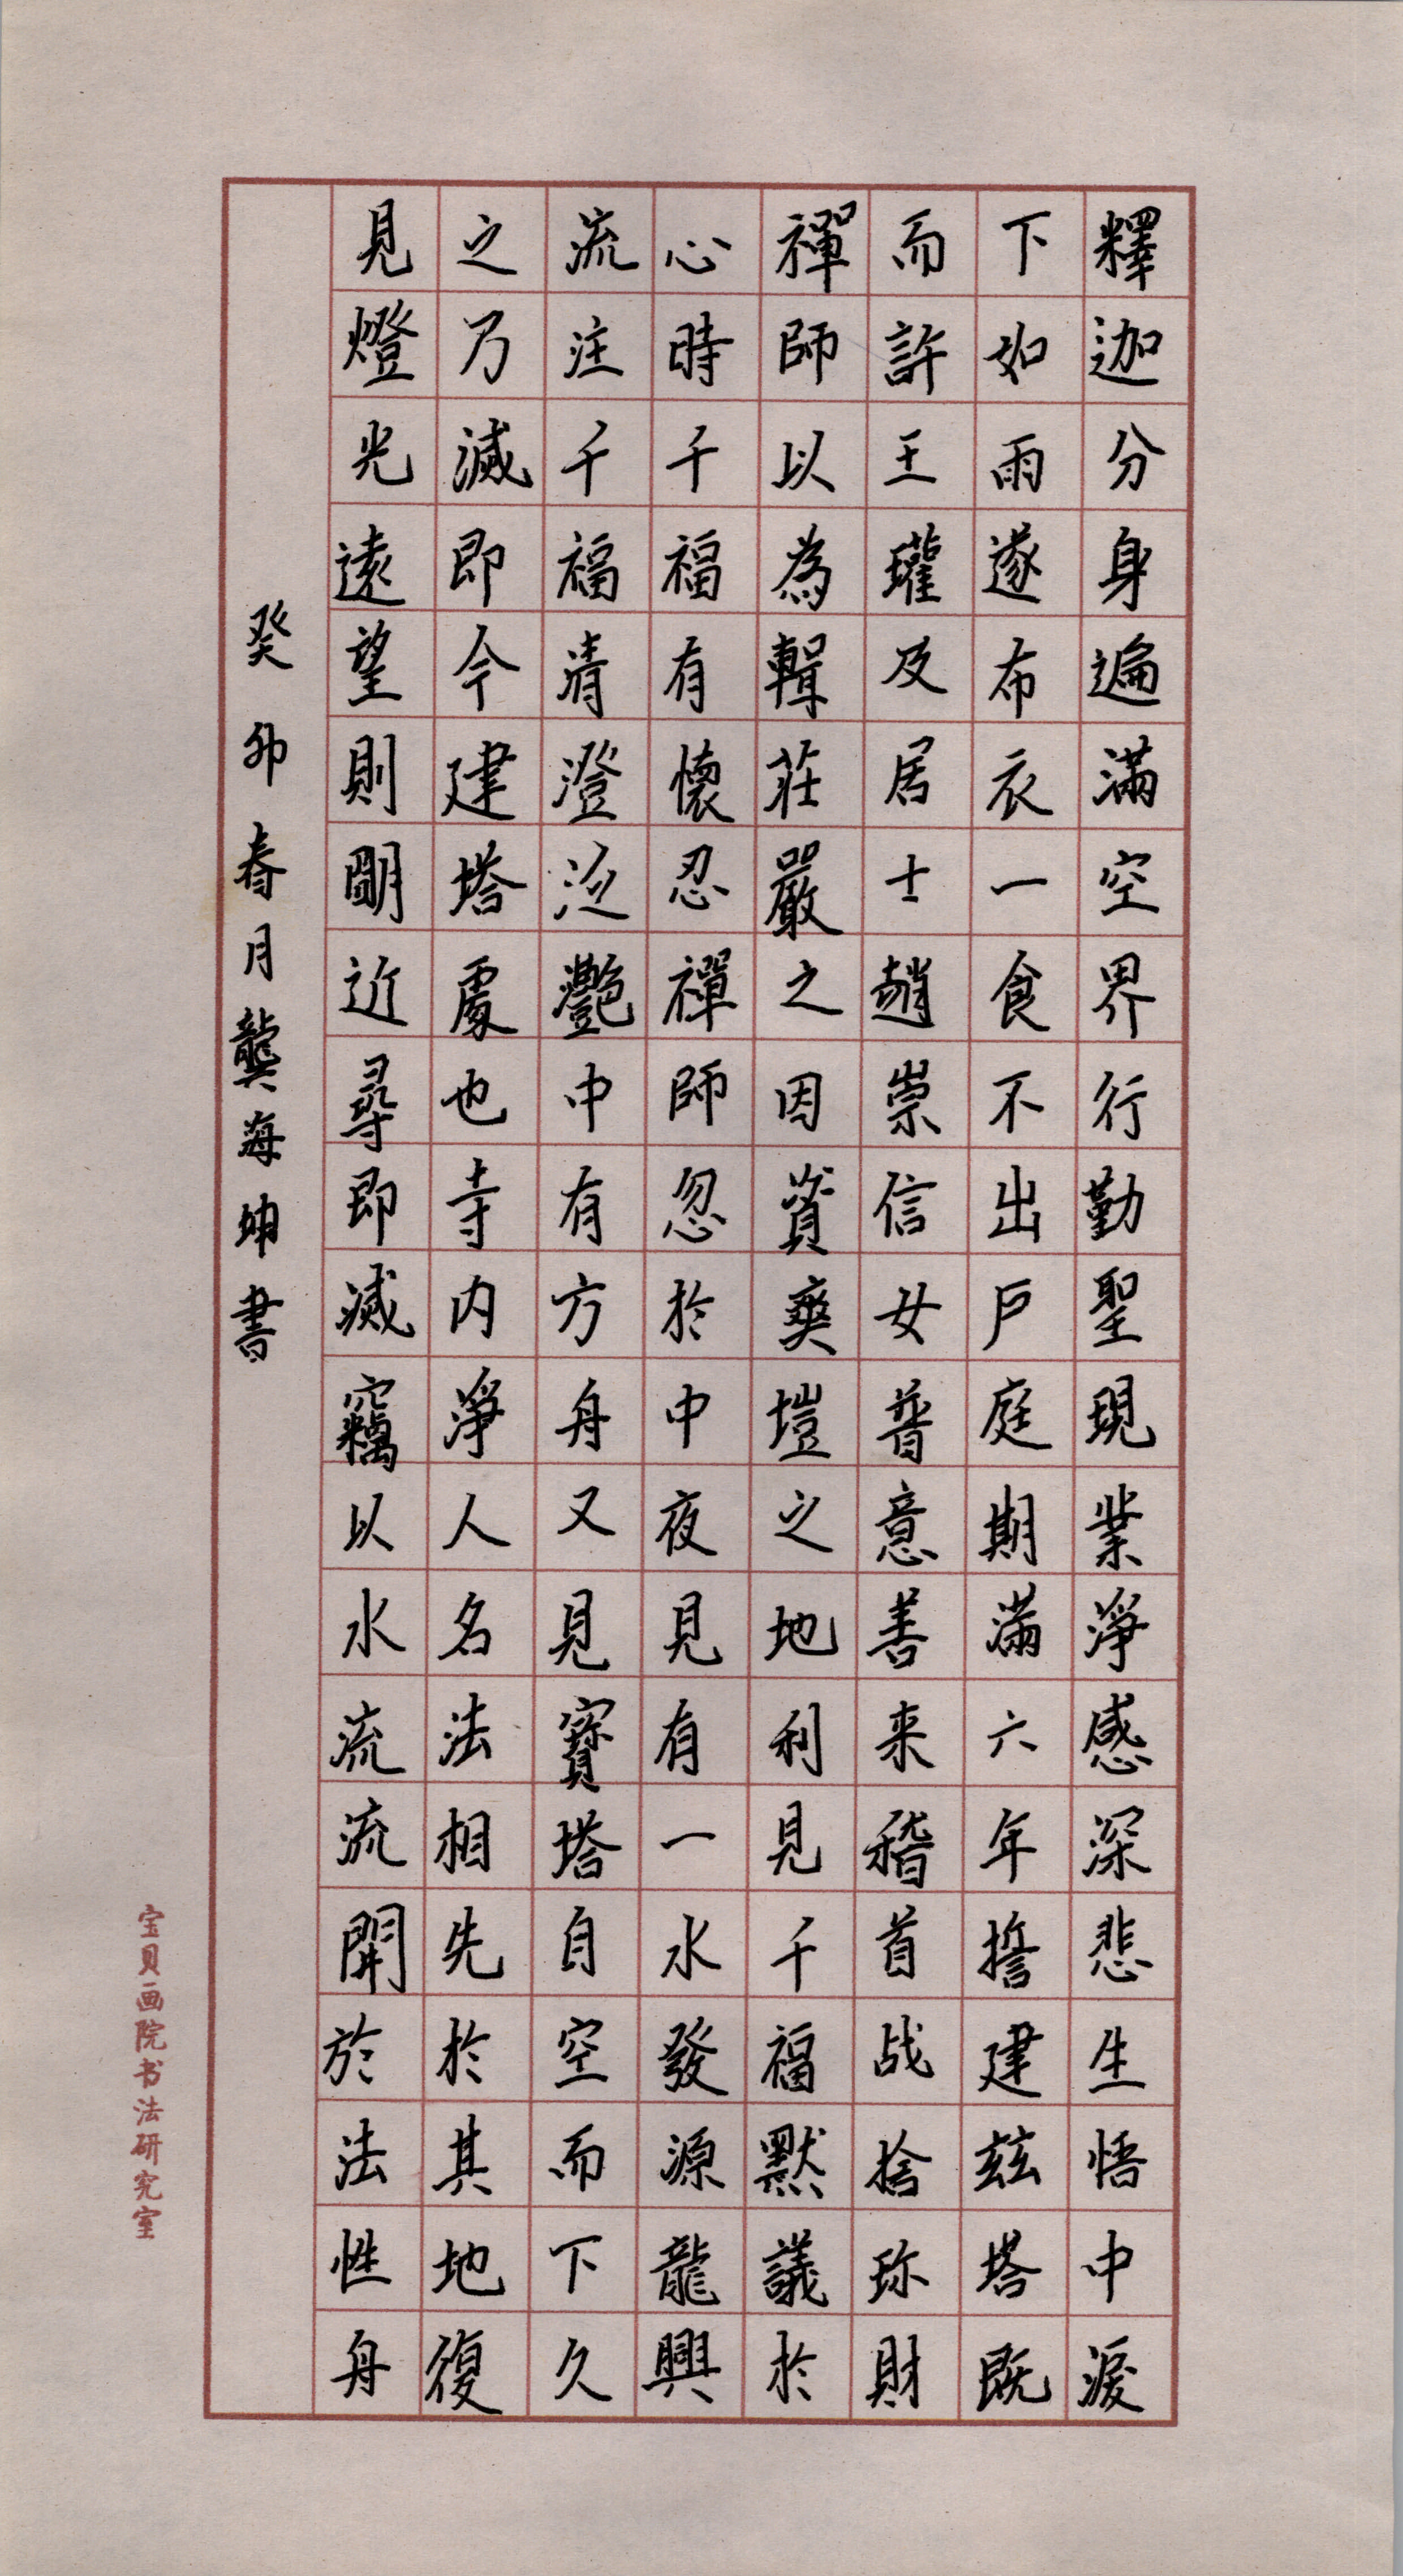 釋迦分身遍滿空界行勤聖現業淨感深悲生悟中淚
下如雨遂布衣一食不出戶庭期滿六年誓建兹塔既
而許王瓘及居士趙崇信女普意善来稽首战捨珎財
禪師以為輯莊嚴之因資爽塏之地利見千福默議於
心時千福有懷忍禪師忽於中夜見有一水發源龍興
流注千福清澄泛灔中有方舟又見寶塔自空而下久
之乃滅即今建塔處也寺内淨人名法相先於其地復
見燈光遠望則明近尋即滅竊以水流流開於法性舟
癸卯春月龔海坤書
宝贝画院书法研究室